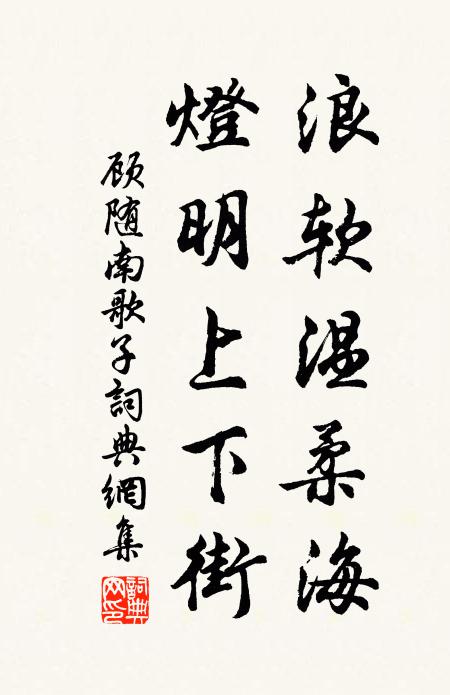 浪软温柔海
燈明上下街
顾随南歌子詞典網集
詞典網印